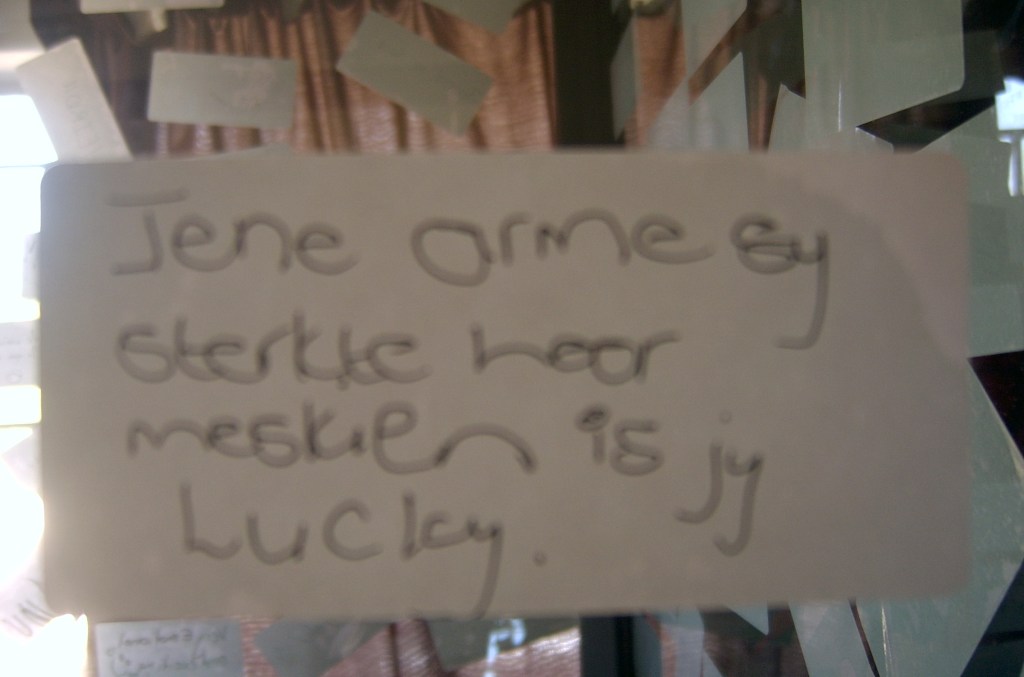 Jene arme sy
sterkte hoor
meskien is jy
Lucky.